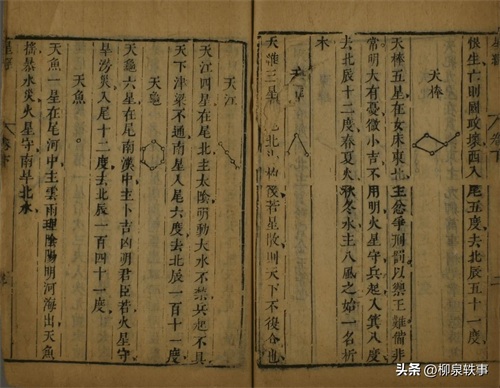 恨生亡則國政壞西入尾五度去北辰五十一度
天棓
天棓五星在女床東北主忿爭刑罰以禦王難備非
常明大有憂微小吉不用明火星守兵起入箕八度
去北辰十二度春夏火秋冬水主八風之始一名析
木
天
天維三星尾北斗後若星散則天下不復合也
天江
天江四星在尾北主太陰明動大水不禁兵起不具
天下津梁不通南星入尾六度去北辰一百十一度
天龜
天龜六星在尾南漢中主卜吉凶明君臣若火星守
旱澇災入尾十二度去北辰一百四十一度
天魚
天魚一星在尾河中主雲雨理陰陽明河海出天魚
搖暴水災火星守南旱北水
头条 @柳泉轶事